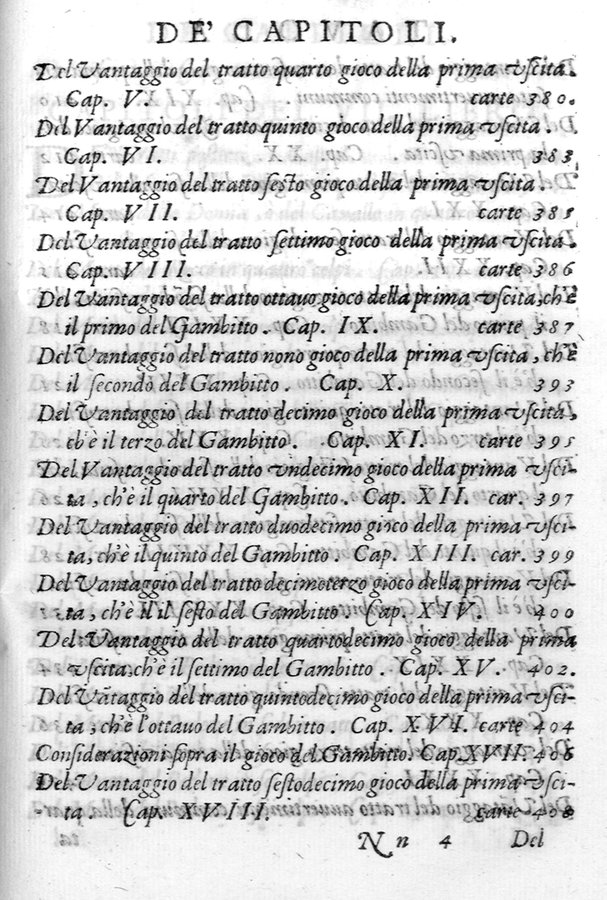 DE' CAPITOLI.
Del Vantaggio del tratto quarto gioco della prima vscita.
Cap. V. carte 380.
Del Vantaggio del tratto quinto gioco della prima vscita.
Cap. VI. 383
Del Vantaggio del tratto sesto gioco della prima vscita.
Cap. VII. carte 385
Del Vantaggio del tratto settimo gioco della prima vscita.
Cap. VIII. carte 386
Del Vantaggio del tratto ottauo gioco della prima vscita, ch'è
il primo del Gambitto. Cap. IX. carte 387
Del Vantaggio del tratto nono gioco della prima vscita, ch'è
il secondo del Gambitto. Cap. X. 393
Del Vantaggio del tratto decimo gioco della prima vscita,
ch'è il terzo del Gambitto. Cap. XI. carte 395
Del Vantaggio del tratto vndecimo gioco della prima vsci-
ta, ch'è il quarto del Gambitto. Cap. XII. car. 397
Del Vantaggio del tratto duodecimo gioco della prima vsci-
ta, ch'è il quinto del Gambitto. Cap. XIII. car. 399
Del Vantaggio del tratto decimoterzo gioco della prima vsci-
ta, ch'è il il sesto del Gambitto. Cap. XIV. 400
Del Vantaggio del tratto quartodecimo gioco della prima
vscita, ch'è il settimo del Gambitto. Cap. XV. 402.
Del Vātaggio del tratto quintodecimo gioco della prima vsci-
ta, ch'è l'ottauo del Gambitto. Cap. XVI. carte 404
Considerazioni sopra il gioco del Gambitto. Cap. XVII. 406
Del Vantaggio del tratto sestodecimo gioco della prima vsci-
ta. Cap. XVIII. carte 408
Nn 4 Del